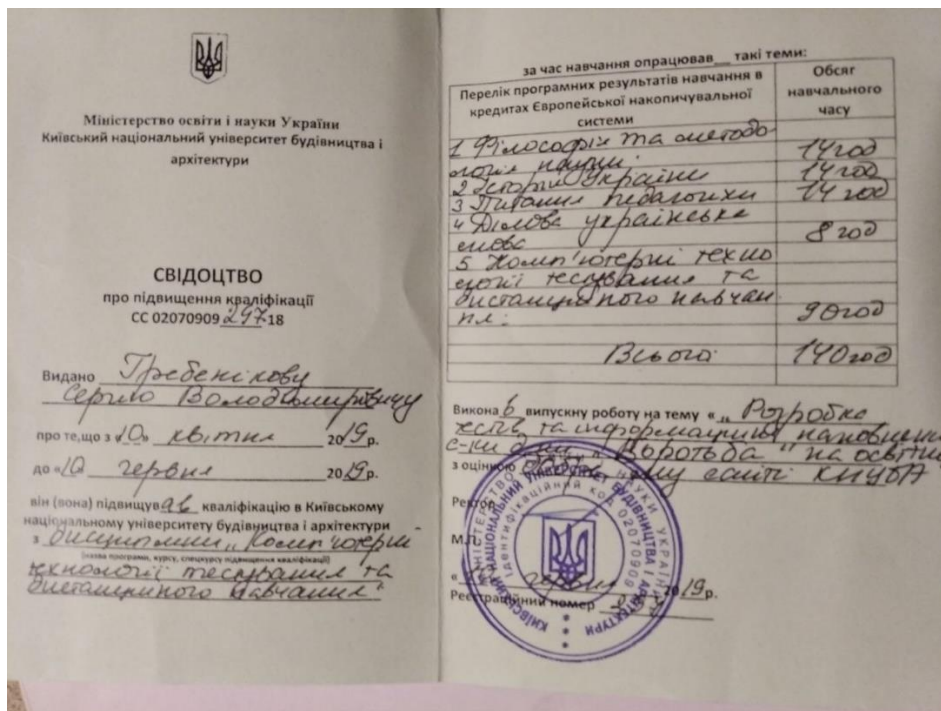 Міністерство освіти і науки України
Київський національний університет будівництва і
архітектури
СВІДОЦТВО
про підвищення кваліфікації
СС 02070909 297-18
Видано Гребенікову
Сергію Володимировичу
про те,що з «10» квітня 2019р.
до «10 червня 2019р.
він (вона) підвищував кваліфікацію в Київському
національному університету будівництва і архітектури
з дисципліни „Комп'ютерні
(назва програми, курсу, спецкурсу підвищення кваліфікації)
технології тестування та
дистанційного навчання"
за час навчання опрацював__ такі теми:
Перелік програмних результатів навчання в
кредитах Європейської накопичувальної
системи
Обсяг
навчального
часу
1 Філософія та методо
логія науки. 14 год
2 Історія України 14 год
3 Питання педагогіки 14 год
4 Ділова українська
мова 8 год
5 Комп'ютерні техно
логії тестування та
дистанційного навчан
ня. 90 год
Всього: 140 год
Викона в випускну роботу на тему « „ Розробка
тестів та інформаційне наповнення
с-ки дисц. „Боротьба" на освітн
з оцінкою сайті КНУБА
Ректор
М.П.
« червня 2019р.
Реєстраційний номер
МІНІСТЕРСТВО ОСВІТИ І НАУКИ УКРАЇНИ
КИЇВСЬКИЙ НАЦІОНАЛЬНИЙ УНІВЕРСИТЕТ БУДІВНИЦТВА І АРХІТЕКТУРИ
Ідентифікаційний код 02070909